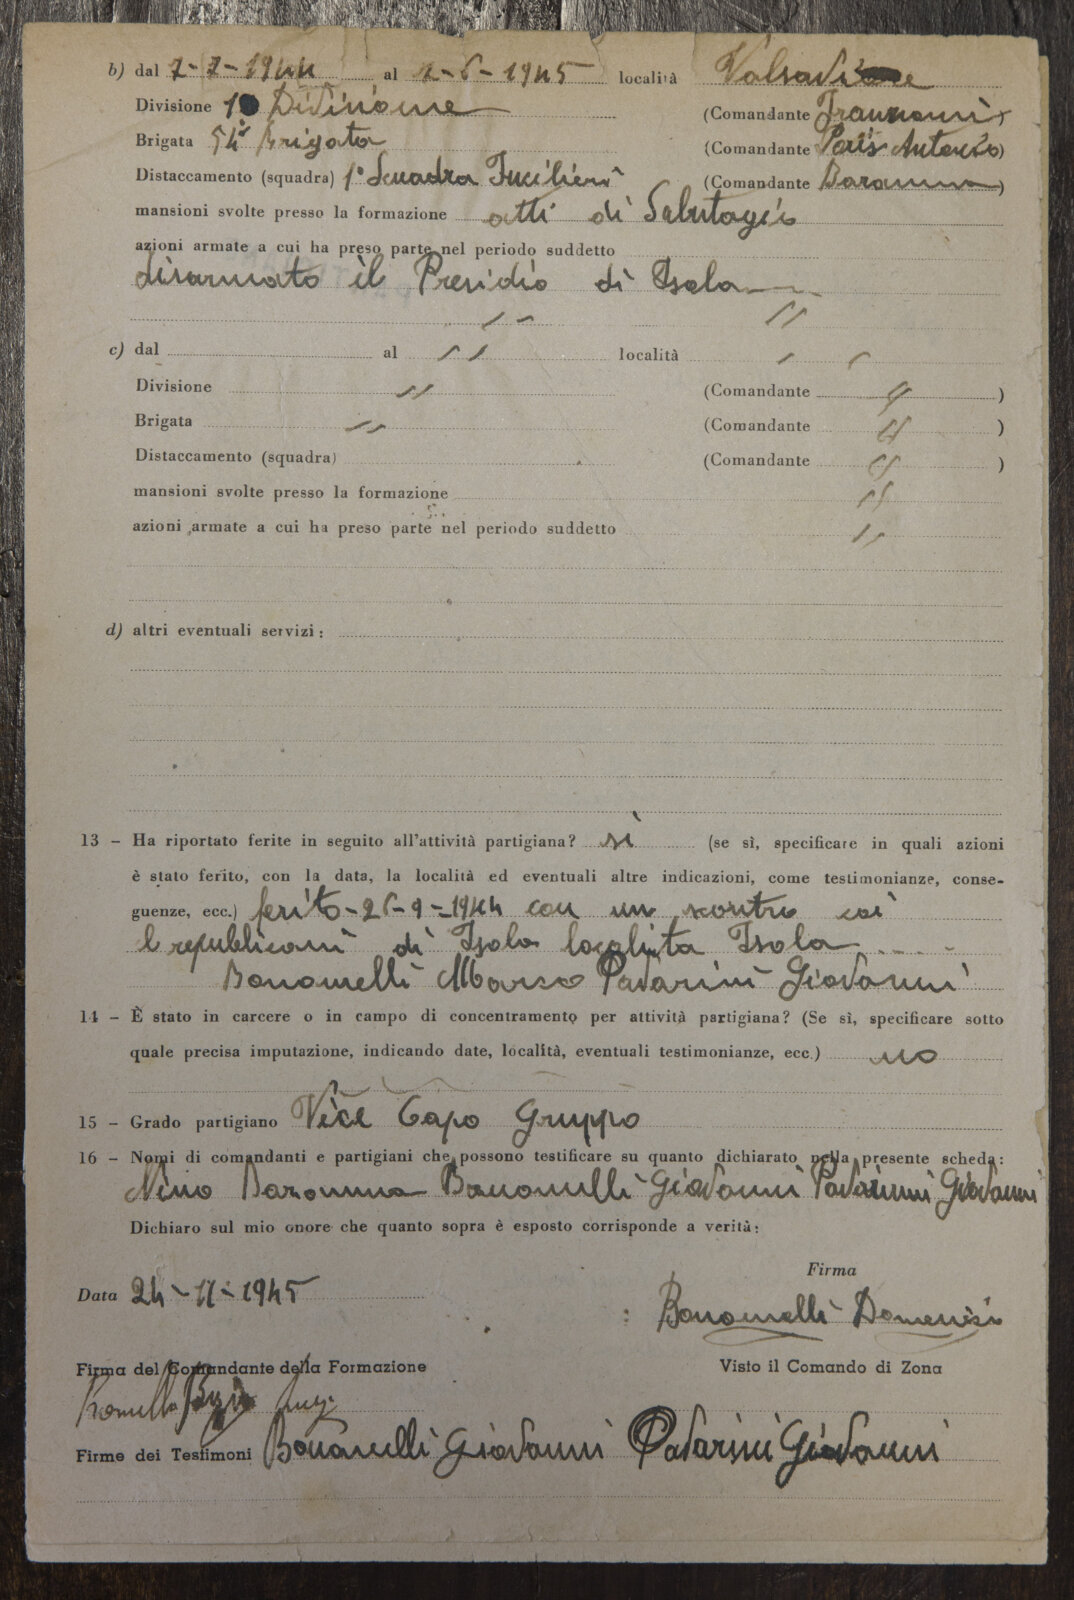 b) dal 7-7-1944 al 2-6-1945 località Valsaviore
Divisione 1 Divisione (Comandante
Brigata 54ª Brigata (Comandante Paris Antonio)
Distaccamento (squadra) 1º Scuadra Fucilieri (Comandante Baramma)
mansioni svolte presso la formazione atti di Sabutagio
azioni armate a cui ha preso parte nel periodo suddetto
disarmato il Presidio di Isola
c) dal al località
Divisione (Comandante )
Brigata (Comandante )
Distaccamento (squadra) (Comandante )
mansioni svolte presso la formazione
azioni armate a cui ha preso parte nel periodo suddetto
d) altri eventuali servizi:
13 – Ha riportato ferite in seguito all'attività partigiana? sì (se sì, specificare in quali azioni
è stato ferito, con la data, la località ed eventuali altre indicazioni, come testimonianze, conse-
guenze, ecc.) ferito-26-9-1944 con un scontro coi
repubblicani di Isola località Isola
Bonomelli Marco Padarini Giovanni
14 – È stato in carcere o in campo di concentramento per attività partigiana? (Se sì, specificare sotto
quale precisa imputazione, indicando date, località, eventuali testimonianze, ecc.) no
15 – Grado partigiano Vice Capo Gruppo
16 – Nomi di comandanti e partigiani che possono testificare su quanto dichiarato nella presente scheda:
Nino Baromma Bonomelli Giovanni Padarinni Giovanni
Dichiaro sul mio onore che quanto sopra è esposto corrisponde a verità:
Firma
Data 24-11-1945 : Bonomelli Domenico
Firma del Comandante della Formazione Visto il Comando di Zona
Firme dei Testimoni Bonomelli Giovanni Padarini Giovanni